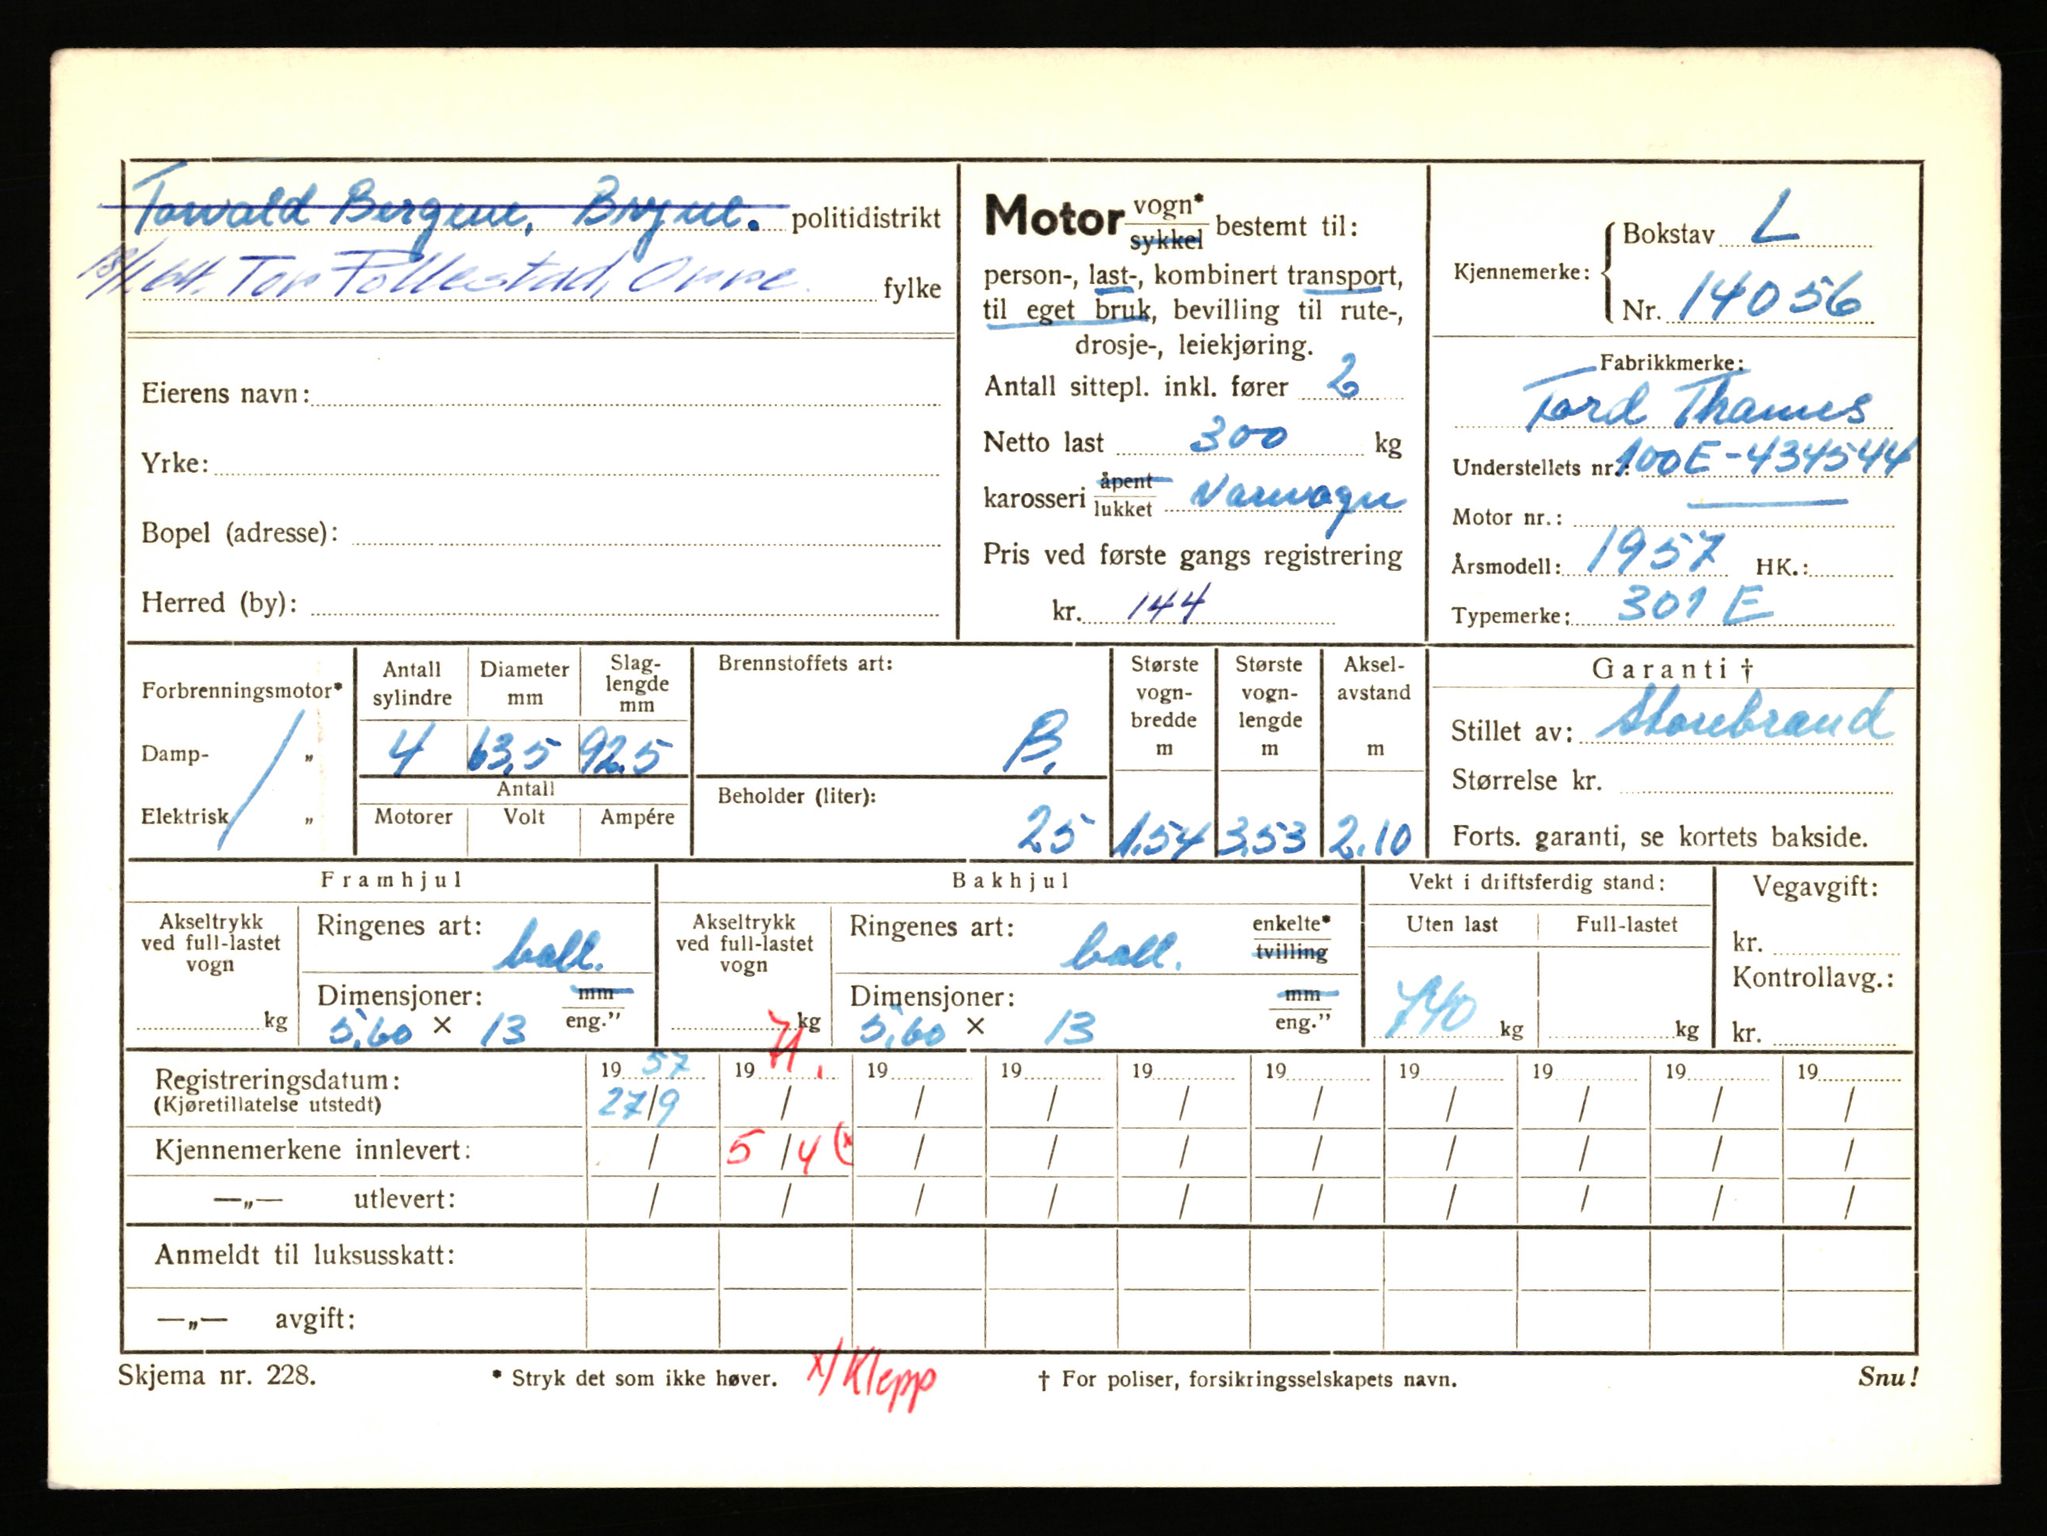 Torvald Bergene, Bryne. politidistrikt
Tor Follestad, Orre. fylke
Eierens navn:
Yrke:
Bopel (adresse):
Herred (by):
Motor vogn* sykkel bestemt til:
person-, last-, kombinert transport,
til eget bruk, bevilling til rute-,
drosje-, leiekjøring.
Antall sittepl. inkl. fører 2
Netto last 300 kg
karosseri åpent lukket Varevogn
Pris ved første gangs registrering
kr. 144
Kjennemerke: Bokstav L
Nr. 14056
Fabrikkmerke:
Ford Thames
Understellets nr.: 100E-434544
Motor nr.:
Årsmodell: 1957 HK.:
Typemerke: 301 E
Forbrenningsmotor*
Damp- „
Elektrisk „
Antall sylindre Diameter mm Slag-lengde mm
4 63,5 92.5
Antall
Motorer Volt Ampére
Brennstoffets art:
B.
Beholder (liter):
25
Største vogn-bredde m Største vogn-lengde m Aksel-avstand m
1.54 3.53 2.10
Garanti †
Stillet av: Storebrand
Størrelse kr.
Forts. garanti, se kortets bakside.
Framhjul
Akseltrykk ved full-lastet vogn
kg
Ringenes art: ball.
Dimensjoner: mm eng.”
5,60 × 13
Bakhjul
Akseltrykk ved full-lastet vogn
kg
Ringenes art: ball. enkelte* tvilling
Dimensjoner: mm eng.”
5,60 × 13
Vekt i driftsferdig stand:
Uten last Full-lastet
740 kg kg
Vegavgift:
kr.
Kontrollavg.:
kr.
Registreringsdatum: 19 57 19 71. 19 19 19 19 19 19 19 19
(Kjøretillatelse utstedt) 27/9 / / / / / / / / /
Kjennemerkene innlevert: / 5/4 (x / / / / / / / /
—„— utlevert: / / / / / / / / / /
Anmeldt til luksusskatt:
—„— avgift:
Skjema nr. 228. * Stryk det som ikke høver. x/ Klepp † For poliser, forsikringsselskapets navn. Snu!